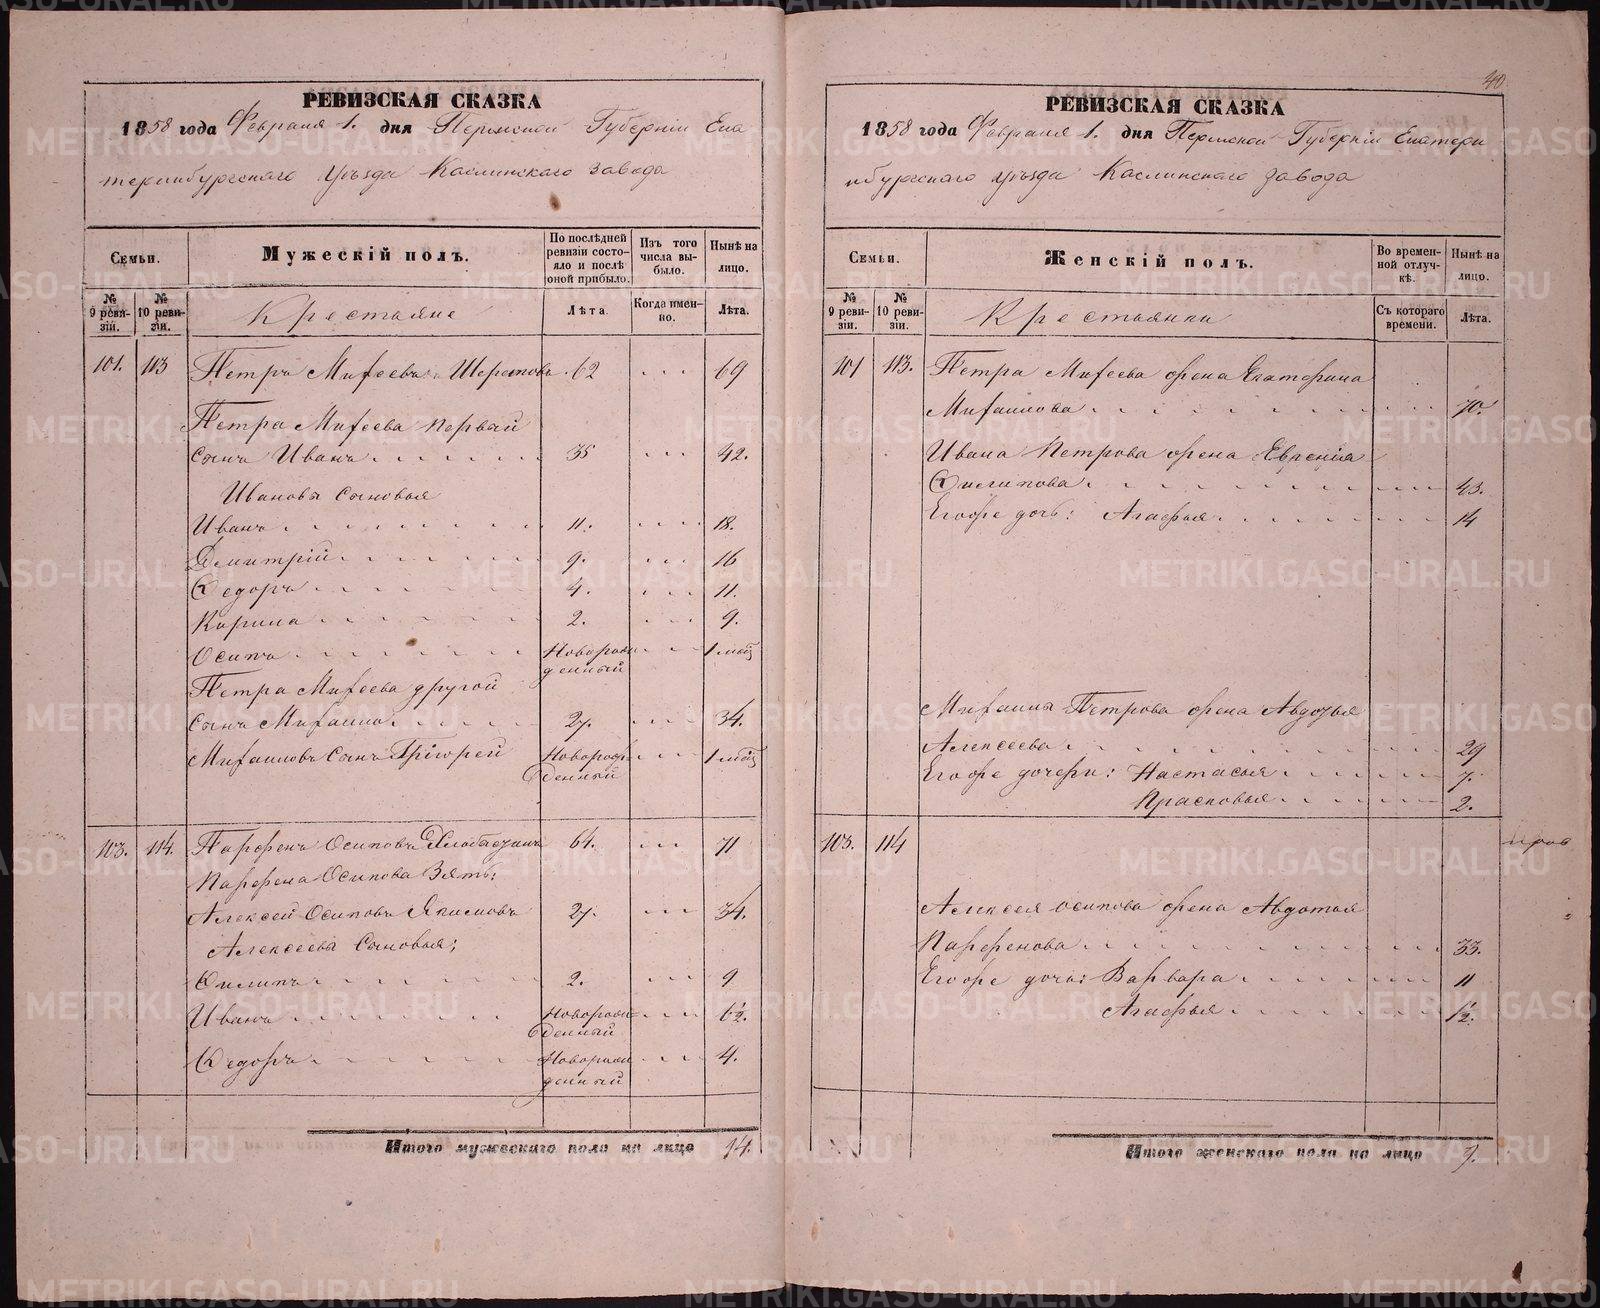 РЕВИЗСКАЯ СКАЗКА
1858 года Февраля 1. дня Пермской Губерніи Ека
теринбургскаго Уѣзда Каслинскаго завода
Семьи.
Мужескій полъ.
По послѣдней ревизіи состояло и послѣ оной прибыло.
Изъ того числа выбыло.
Нынѣ на лицо.
№ 9 ревизіи.
№ 10 ревизіи.
Крестьяне
Лѣта.
Когда именно.
Лѣта.
101. 113 Петръ Михеевъ 62 69
Петра Михеева первый
сынъ Иванъ 35 42.
Ивановы сыновья
Иванъ 11. 18.
Дмитрій 9. 16
Федоръ 4. 11.
Карпила 2. 9.
Осипъ Новорожденный 1 мѣс
Петра Михеева другой
сынъ Михаило 27. 34.
Михаиловъ сынъ Григорей Новорожденный 1 мѣс
103. 114. Парфенъ Осиповъ 64. 71
Парфена Осипова Зять:
Алексей Осиповъ Якимовъ 27. 34.
Алексеевы сыновья;
Филипъ 2. 9
Иванъ Новорожденный 6½.
Федоръ Новорожденный 4.
Итого мужескаго пола на лицо 14.
40
РЕВИЗСКАЯ СКАЗКА
1858 года Февраля 1. дня Пермской Губерніи Екатери
нбургскаго Уѣзда Каслинскаго завода
Семьи.
Женскій полъ.
Во временной отлучкѣ.
Нынѣ на лицо.
№ 9 ревизіи.
№ 10 ревизіи.
Крестьянки
Съ котораго времени.
Лѣта.
101 113. Петра Михеева жена Екатерина
Михаилова 70.
Ивана Петрова жена Евгенія
Филипова 43.
Егоже дочь: Агафья 14
Михаила Петрова жена Авдотья
Алексеева 29
Егоже дочери: Настасья 7.
Прасковья 2.
103. 114
Алексея Осипова жена Авдотья
Парфенова 33.
Егоже дочь: Варвара 11
Агафья ½.
Итого женскаго пола на лицо 7.
METRIKI.GASO-URAL.RU